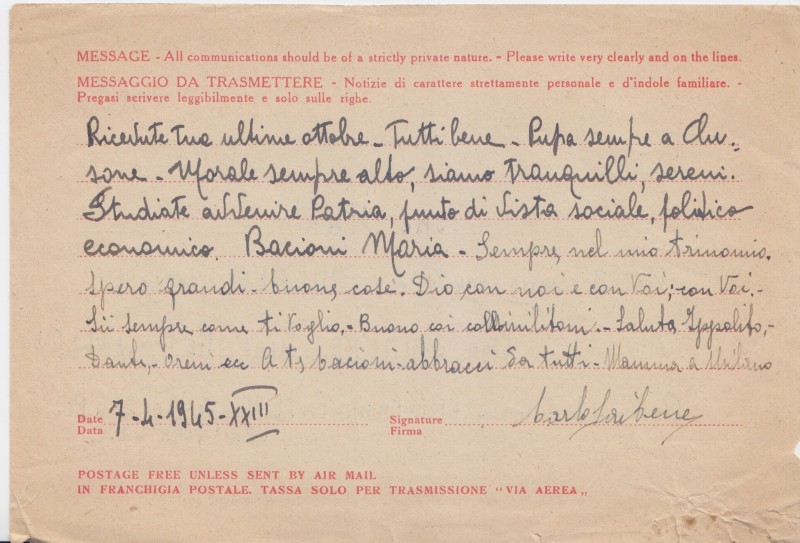 MESSAGE - All communications should be of a strictly private nature. - Please write very clearly and on the lines.
MESSAGGIO DA TRASMETTERE - Notizie di carattere strettamente personale e d'indole familiare. -
Pregasi scrivere leggibilmente e solo sulle righe.
Ricevute tue ultime ottobre - Tutti bene - Pupa sempre a Clu-
sone - Morale sempre alto, siamo tranquilli, sereni.
Studiate avvenire Patria, punto di vista sociale, politico
economico. Bacioni Maria - Sempre, nel mio trinomio.
Spero grandi - buone, cose. Dio con noi e con Voi, - con Voi. -
Sii sempre come ti voglio, - Buono coi - Saluta, Ippolito, -
Dante, - ecc A te, bacioni - abbracci da tutti - Mamma a Milano
Date
Data 7-4-1945-XXIII
Signature
Firma Carlo
POSTAGE FREE UNLESS SENT BY AIR MAIL
IN FRANCHIGIA POSTALE. TASSA SOLO PER TRASMISSIONE "VIA AEREA"